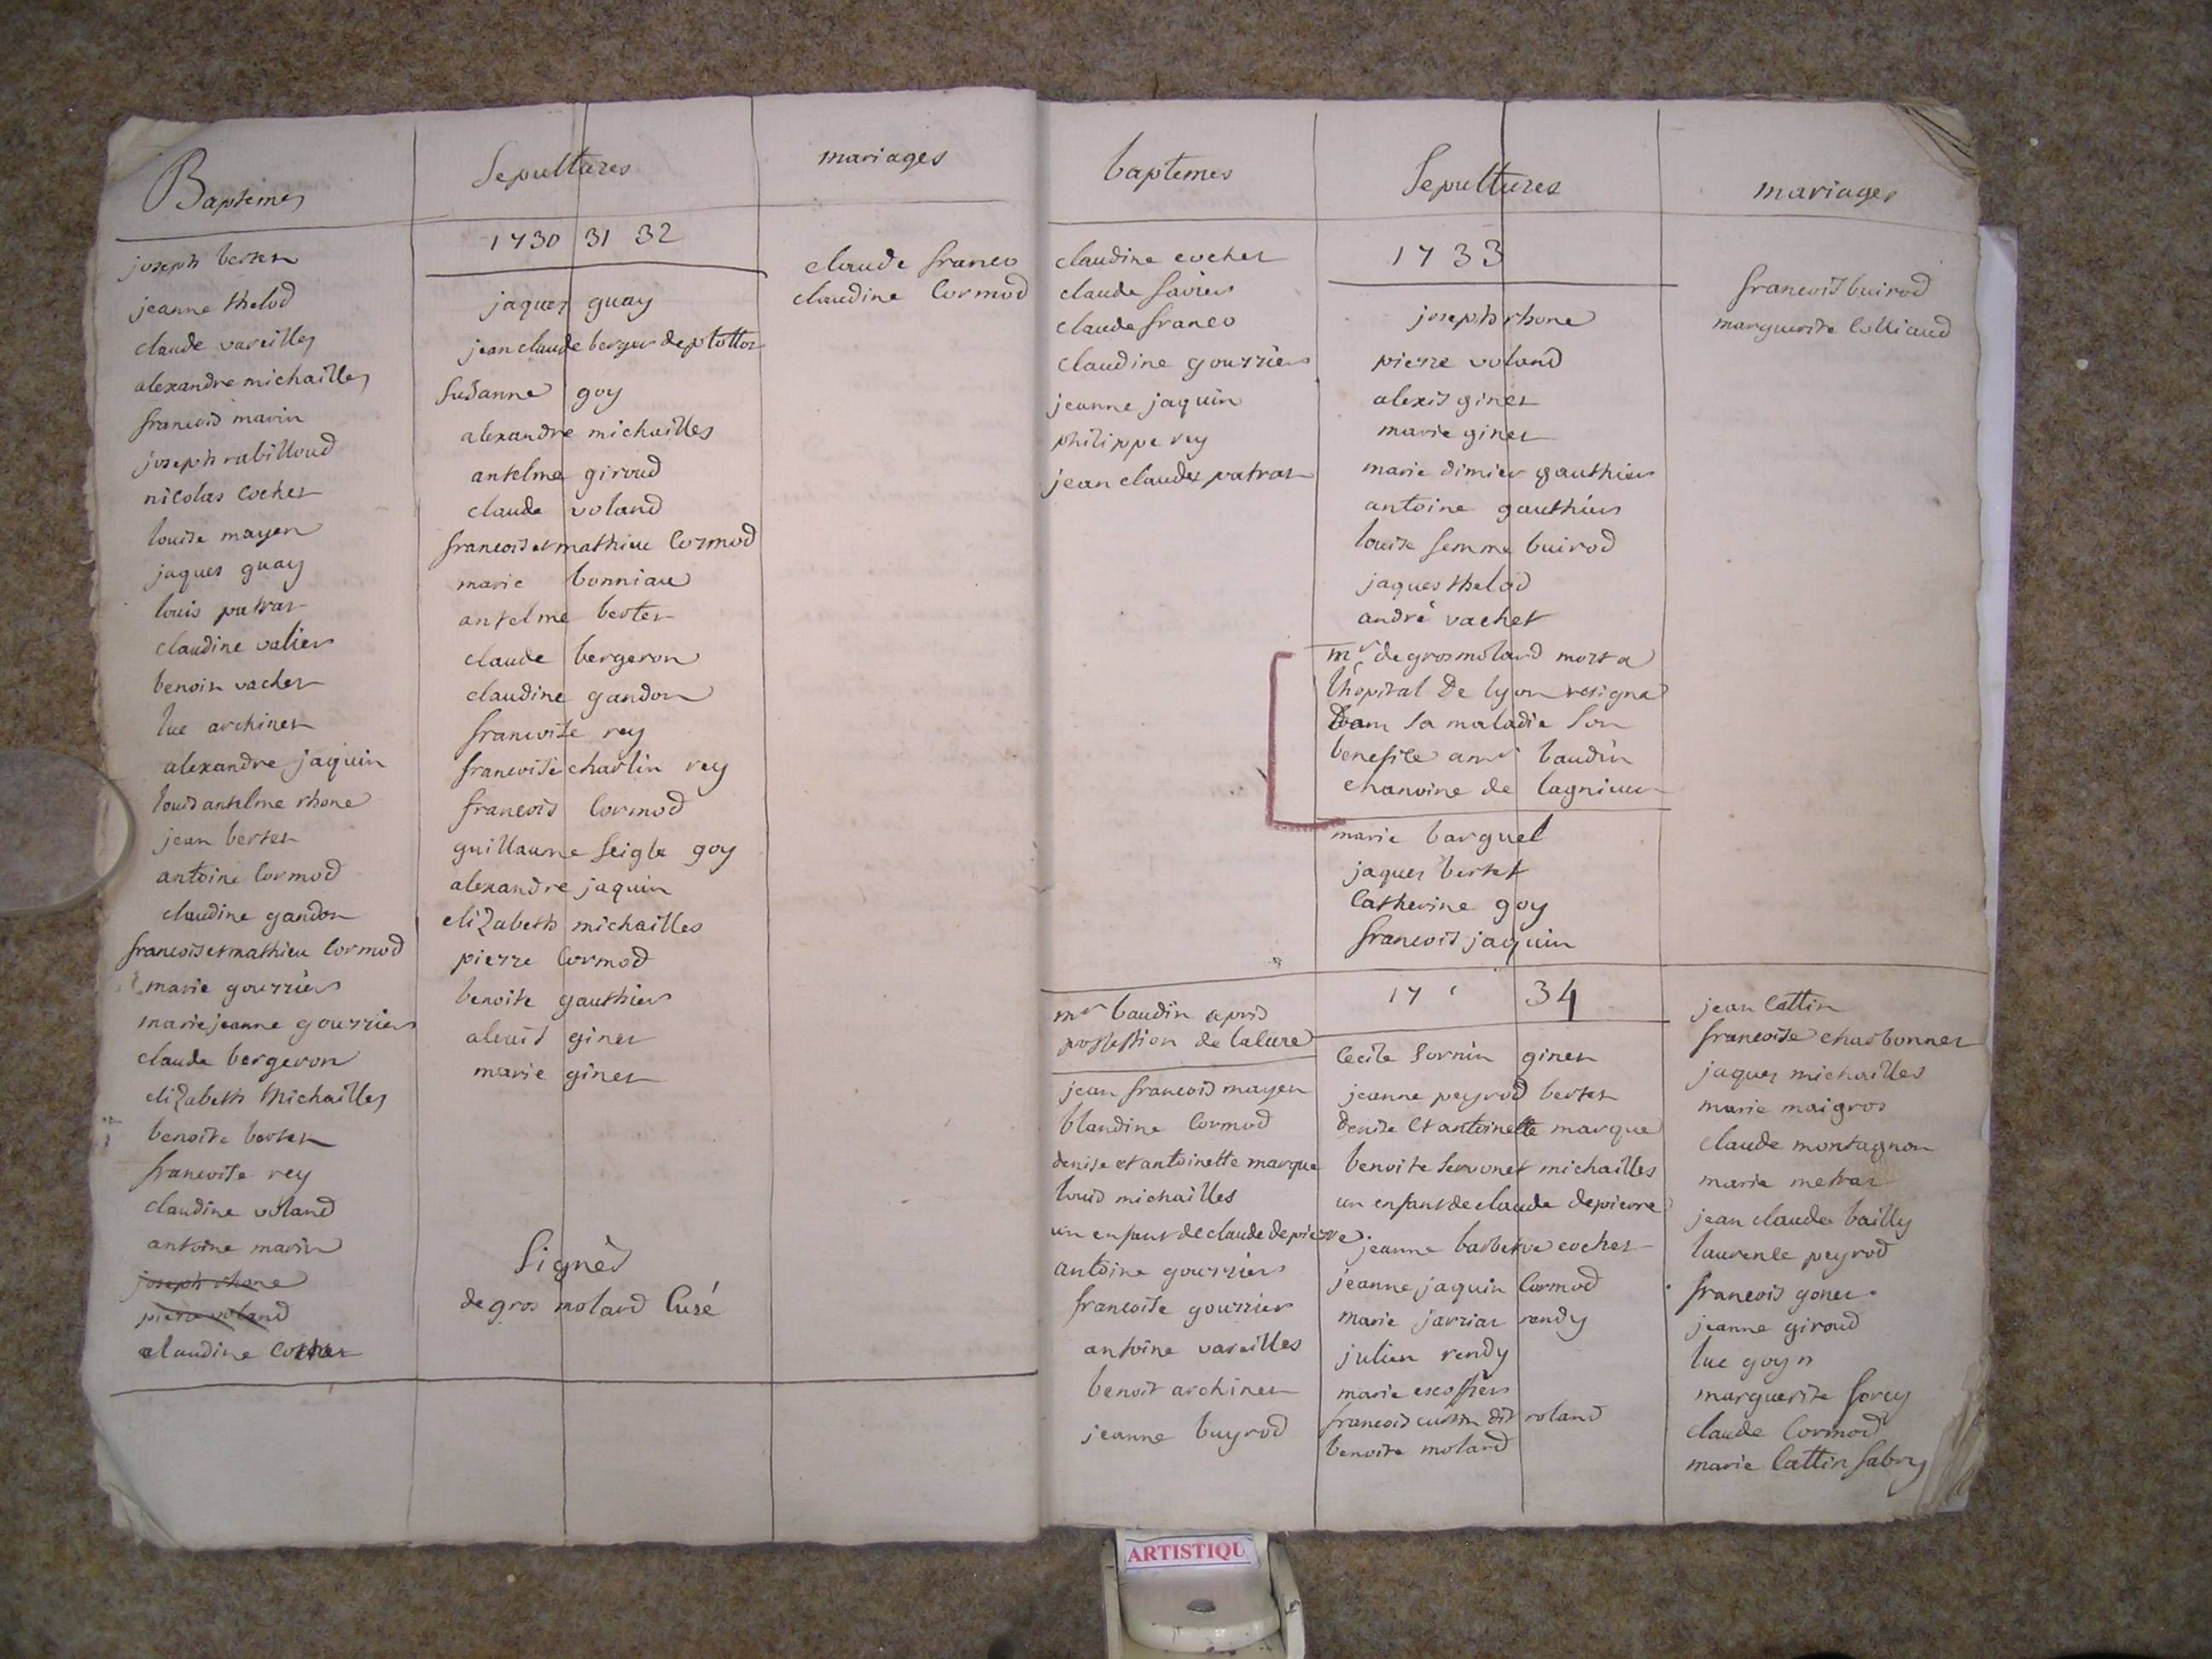 Baptemes
joseph bertet
jeanne thelod
claude vareilles
alexandre michailles
francois marin
joseph rabilloud
nicolas cochet
louise mayen
jaques guay
louis patras
claudine valier
benoit vachet
luc archinet
alexandre jaquin
louis antelme rhone
jean bertet
antoine Cormod
claudine gandon
francois et mathieu Cormod
marie gourrier
marie jeanne gourrier
claude bergeron
elizabeth Michailles
benoite bertet
francoise rey
claudine voland
antoine marin
joseph rhone
pierre voland
claudine Cochet
Sepultures
1730 31 32
jaques guay
jean claude berger
Susanne goy
alexandre michailles
antelme giroud
claude voland
francois et mathieu Cormod
marie bonniau
antelme bertet
claude bergeron
claudine gandon
francoise rey
francoise charlin rey
francois Cormod
guillaume Seigle goy
alexandre jaquin
elizabeth michailles
pierre Cormod
benoite gauthier
alexis ginet
marie ginet
Signés
de gros molard Curé
mariages
claude franco
claudine Cormod
baptemes
claudine cochet
claude savier
claude franco
claudine gourrier
jeanne jaquin
philippe rey
jean claude patras
mr baudin a pris
possession de la cure
jean francois mayen
blandine Cormod
denise et antoinette marque
louis michailles
un enfant de claude depierre
antoine gourrier
francoise gourrier
antoine vareilles
benoit archinet
jeanne buyrod
Sepultures
1733
joseph rhone
pierre voland
alexis ginet
marie ginet
marie dimier gauthier
antoine gauthier
louise femme buirod
jaques thelod
andré vachet
mr de grosmolard mort a
l'hopital De lyon resigna
Dans sa maladie son
benefice a mr baudin
chanoine de lagnieu
marie barquel
jaques bertet
Catherine goy
francois jaquin
17 34
Cecile Sornin ginet
jeanne peyrod bertet
denise Et antoinette marque
benoite servonet michailles
un enfant de claude depierre
jeanne barberve cochet
jeanne jaquin Cormod
marie jarrias rendy
julien rendy
marie escoffier
francois dit roland
benoite molard
mariages
francois buirod
marguerite Colliaud
jean Cattin
francoise charbonnet
jaques michailles
marie maigros
claude montagnon
marie metras
jean claude bailly
laurence peyrod
francois gonet
jeanne giroud
luc goyn
marguerite sorcy
claude Cormod
marie Cattin sabry
ARTISTIQU